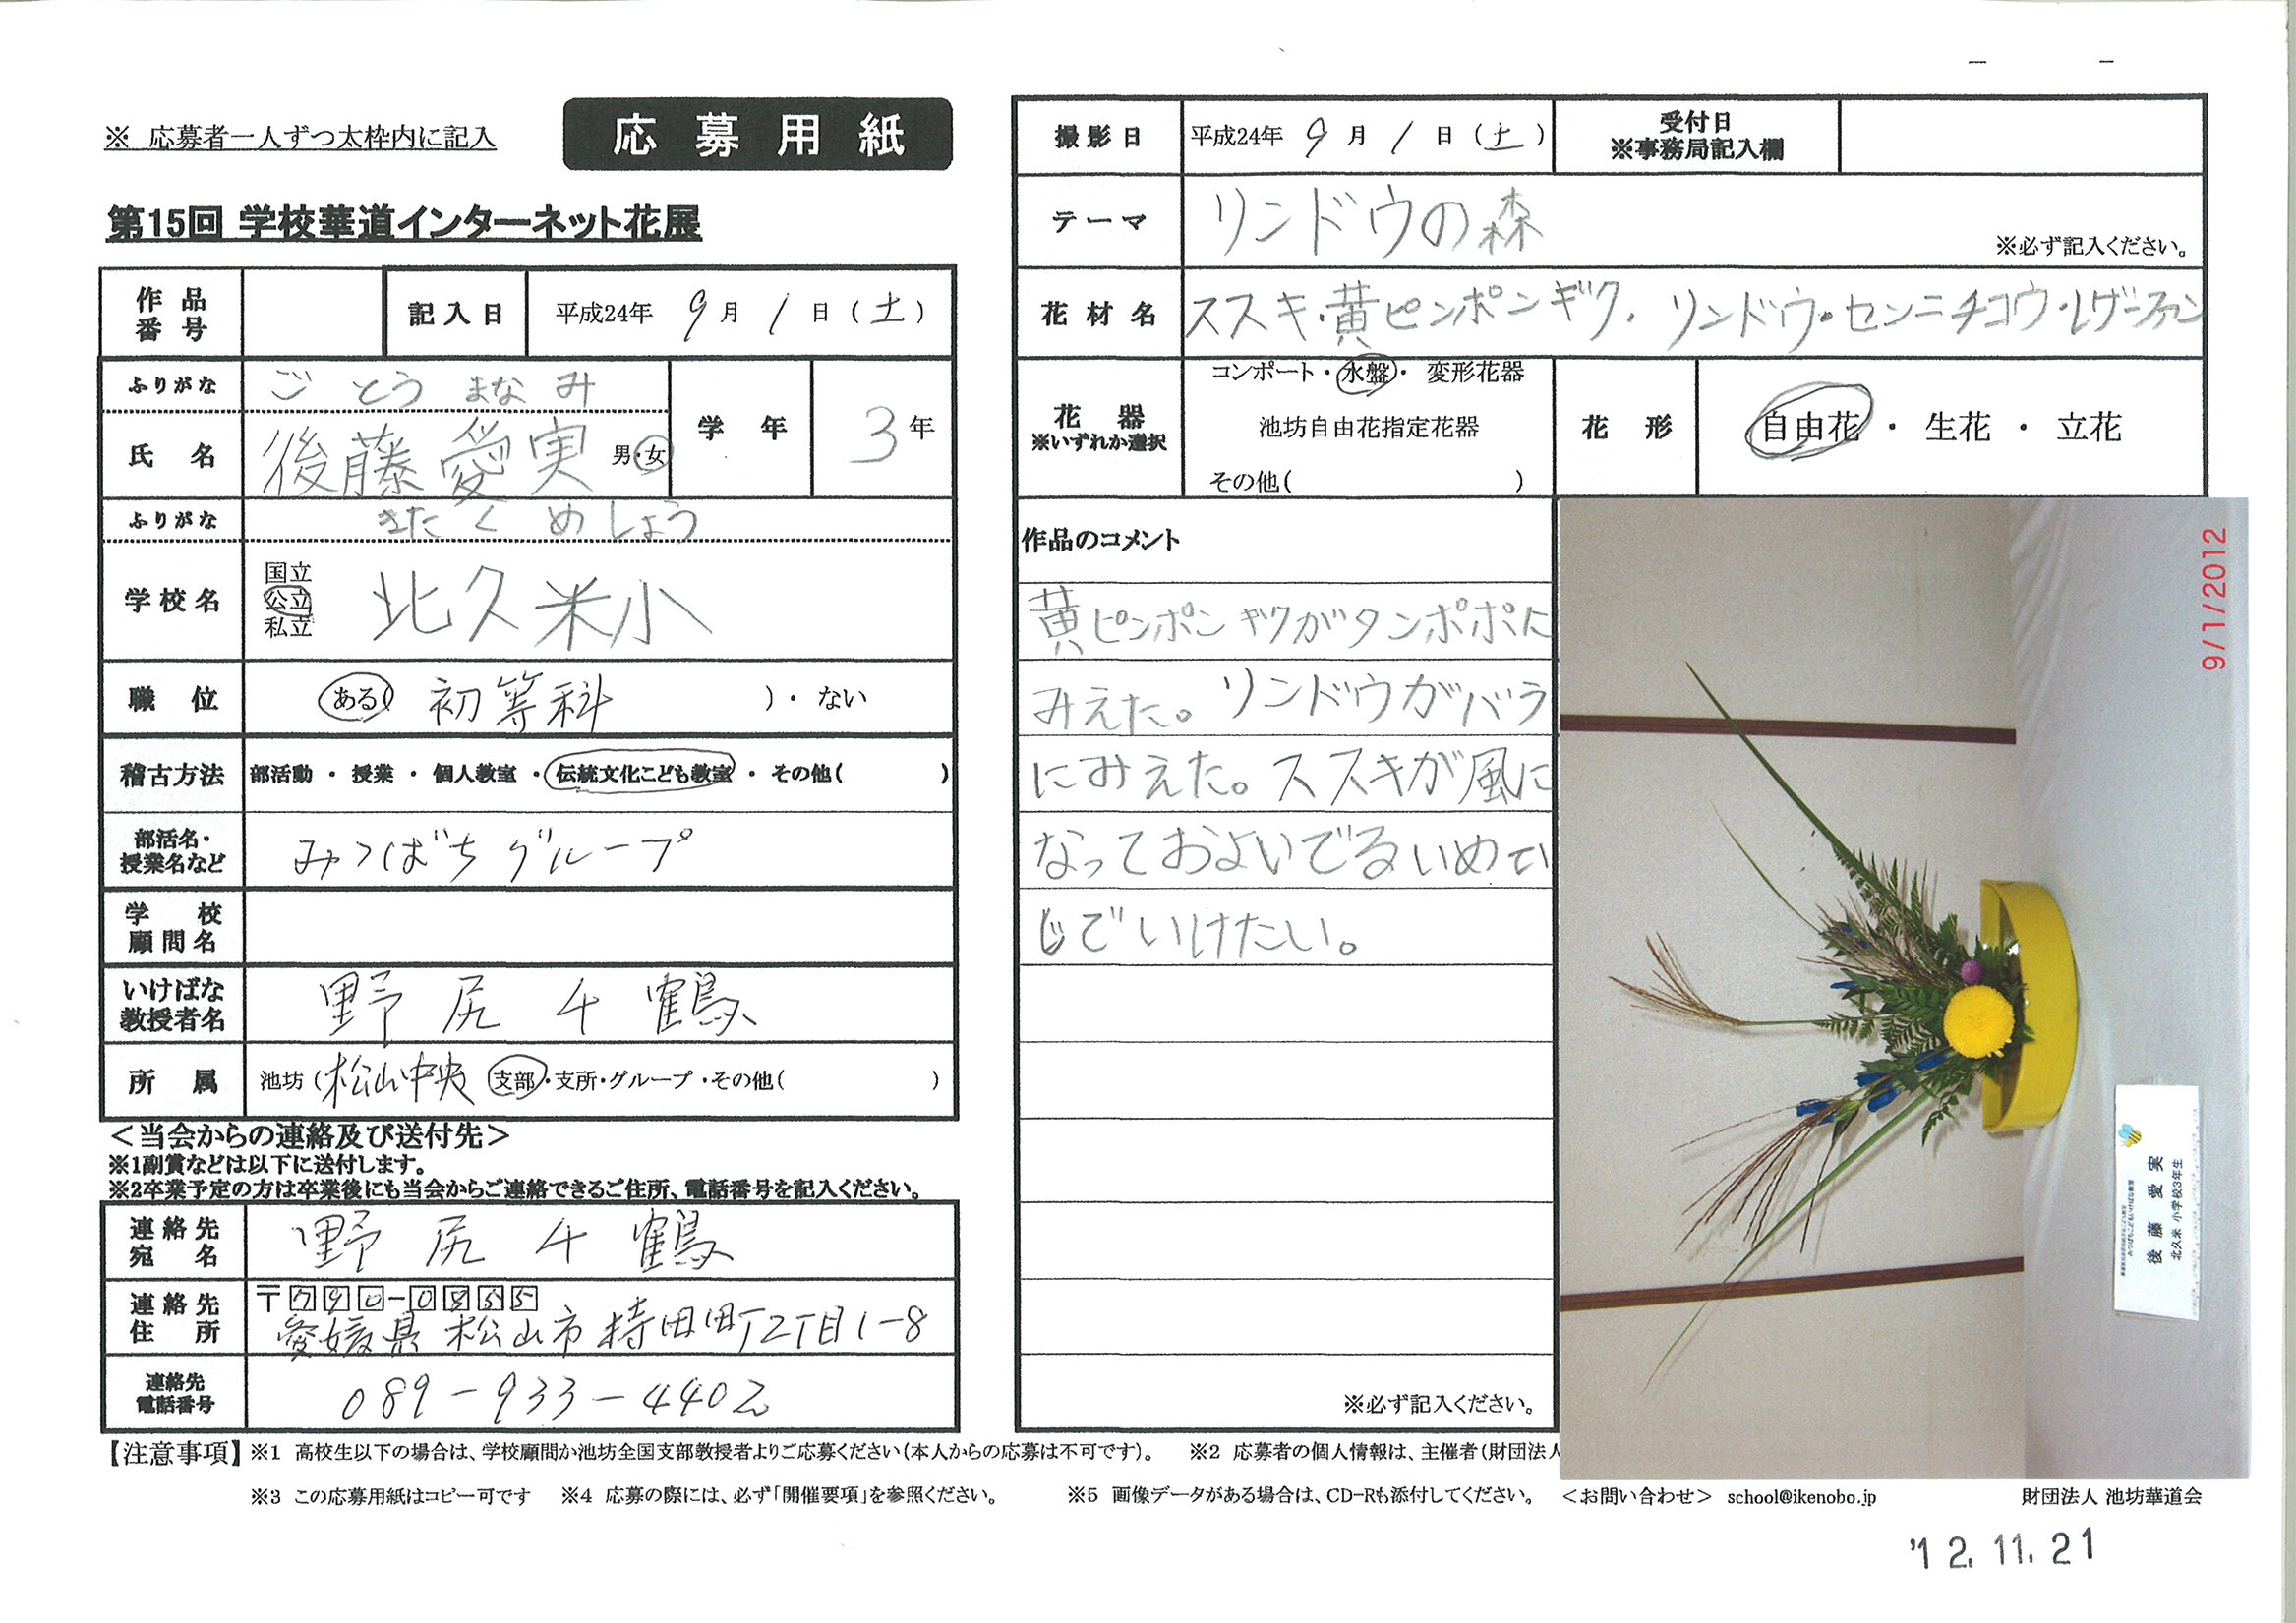 ※ 応募者一人ずつ太枠内に記入
応募用紙
第15回 学校華道インターネット花展
作品番号
記入日 平成24年 9月 1日(土)
ふりがな ごとう まなみ
氏名 後藤愛実 男・女
学年 3年
ふりがな きたくめしょう
学校名 国立 公立 私立 北久米小
職位 ある( 初等科 )・ない
稽古方法 部活動・授業・個人教室・伝統文化こども教室・その他( )
部活名・授業名など みつばちグループ
学校顧問名
いけばな教授者名 野尻千鶴
所属 池坊(松山中央 支部・支所・グループ・その他( )
＜当会からの連絡及び送付先＞
※1副賞などは以下に送付します。
※2卒業予定の方は卒業後にも当会からご連絡できるご住所、電話番号を記入ください。
連絡先宛名 野尻千鶴
連絡先住所 〒790-0855
愛媛県松山市持田町2丁目1-8
連絡先電話番号 089-933-4402
撮影日 平成24年 9月 1日(土)
受付日
※事務局記入欄
テーマ リンドウの森
※必ず記入ください。
花材名 ススキ・黄ピンポンギク・リンドウ・センニチコウ・レザーファン
花器
※いずれか選択
コンポート・水盤・変形花器
池坊自由花指定花器
その他( )
花形 自由花・生花・立花
作品のコメント
黄ピンポンギクがタンポポに
みえた。リンドウがバラ
にみえた。ススキが風に
なっておよいでるいめい
じでいけたい。
※必ず記入ください。
9/1/2012
後藤愛実
北久米小学校3年生
【注意事項】※1 高校生以下の場合は、学校顧問か池坊全国支部教授者よりご応募ください(本人からの応募は不可です)。 ※2 応募者の個人情報は、主催者(財団法人
※3 この応募用紙はコピー可です ※4 応募の際には、必ず「開催要項」を参照ください。 ※5 画像データがある場合は、CD-Rも添付してください。 ＜お問い合わせ＞ school@ikenobo.jp 財団法人 池坊華道会
'12.11.21